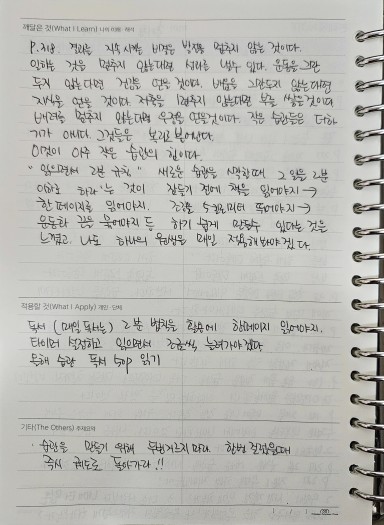 깨달은 것(What I Learn) 나의 이해·해석
P.318. 결과를 지속시키는 비결은 발전을 멈추지 않는 것이다.
일하는 것을 멈추지 않는다면 성과를 낼수 있다. 운동을 그만
두지 않는다면 건강을 얻을 것이다. 배움을 그만두지 않는다면
지식을 얻을 것이다 저축을 멈추지 않는다면 부를 쌓을것이다
배려를 멈추지 않는다면 우정을 얻을것이다. 작은 습관들은 더하
기가 아니다. 그것들은 복리로 불어난다.
이것이 아주 작은 습관의 힘이다.
"읽으면서 2분 규칙" 새로운 습관을 시작할때 그 일을 2분
이하로 하라'는 것이 잠들기 전에 책을 읽어야지 →
한 페이지를 읽어야지. 조깅을 5킬로미터 뛰어야지 →
운동화 끈을 묶어야지 등 하기 쉽게 만들수 있다는 것을
느꼈고, 나도 하나의 습관을 매일 적용해봐야겠다.
적용할 것(What I Apply) 개인·단체
독서 (매일 독서는) 2분 법칙을 활용해 한페이지 읽어야지.
타이머 설정하고 읽으면서 조금씩 늘려가야겠다
올해 습관 독서 50p 읽기
기타(The Others) 주제요약
· 습관을 만들기 위해 두번 거르지 마라. 한번 걸렀을때
즉시 궤도로 돌아가라!!